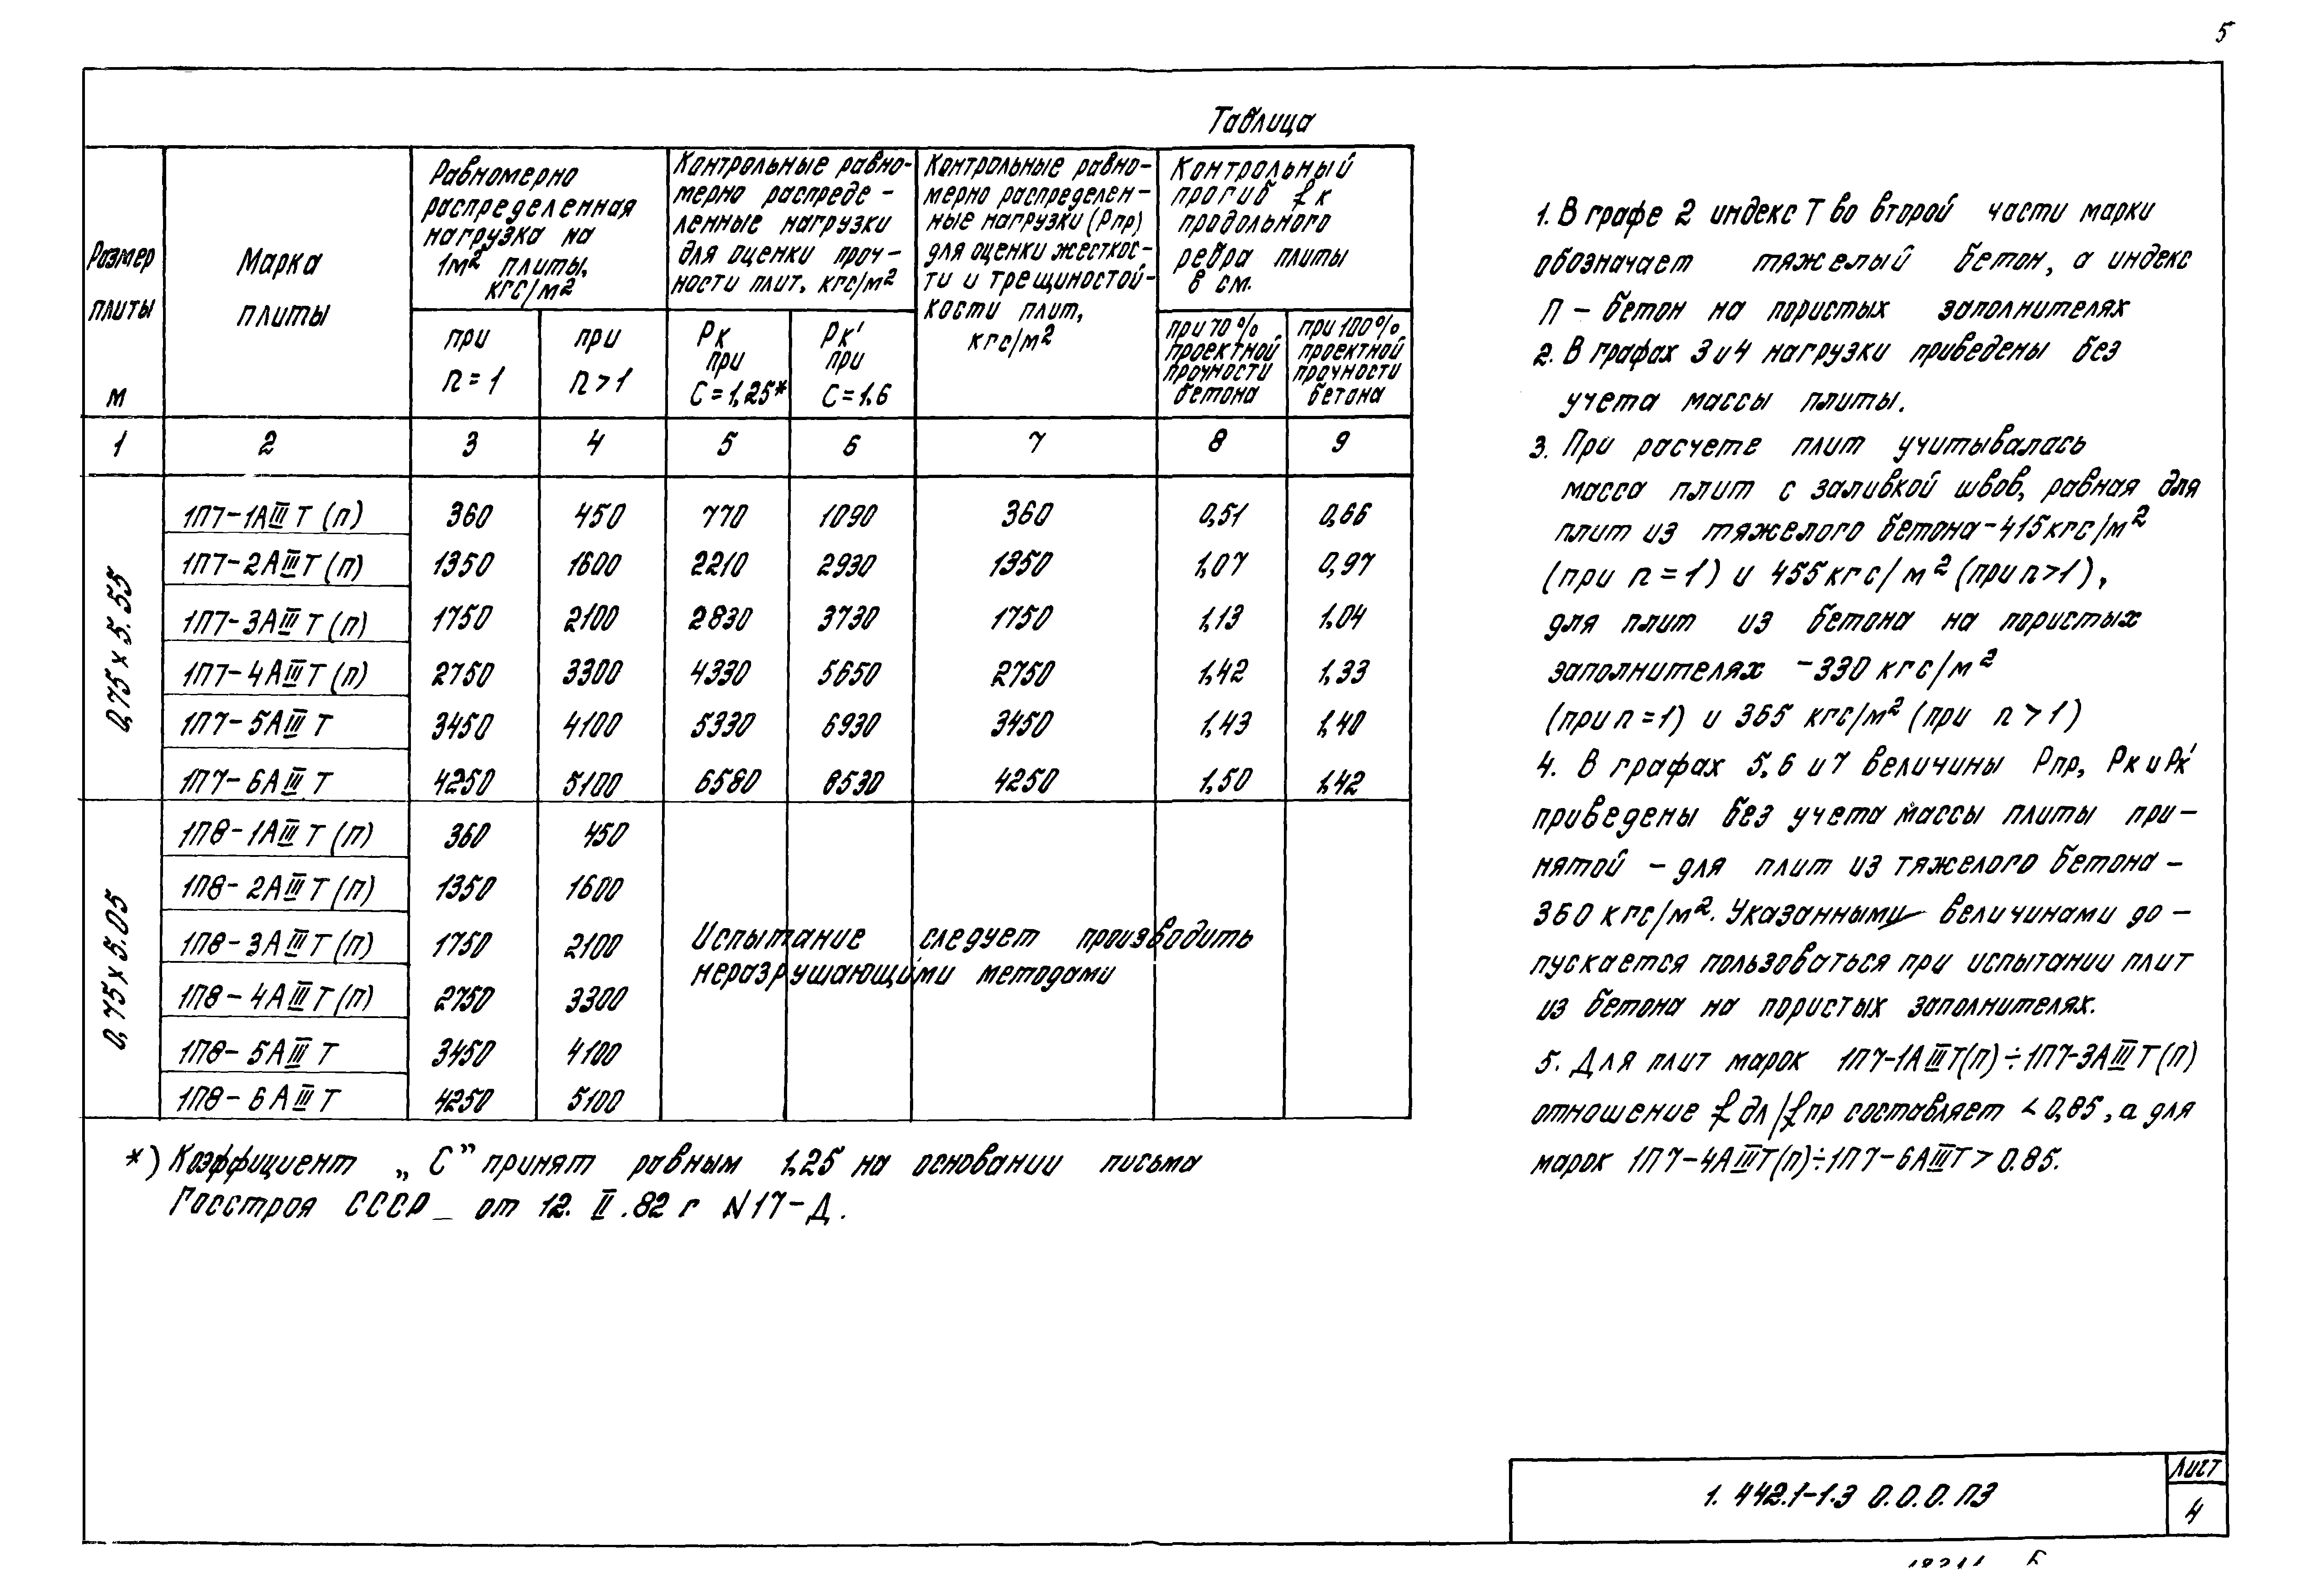 5
Таблица
Размер
плиты
м
Марка
плиты
Равномерно
распределенная
нагрузка на
1м² плиты,
кгс/м²
при
n = 1
при
n > 1
Контрольные равно-
мерно распреде-
ленные нагрузки
для оценки проч-
ности плит, кгс/м²
Рк
при
С=1,25*
Рк'
при
С=1,6
Контрольные равно-
мерно распределен-
ные нагрузки (Рпр)
для оценки жесткос-
ти и трещиностой-
кости плит,
кгс/м²
Контрольный
прогиб fк
продольного
ребра плиты
в см.
при 70%
проектной
прочности
бетона
при 100%
проектной
прочности
бетона
1 2 3 4 5 6 7 8 9
0,75 х 5.55
1П7-1АIIIТ (п) 360 450 770 1090 360 0,51 0,66
1П7-2АIIIТ (п) 1350 1600 2210 2930 1350 1,07 0,97
1П7-3АIIIТ (п) 1750 2100 2830 3730 1750 1,13 1.04
1П7-4АIIIТ (п) 2750 3300 4330 5650 2750 1,42 1,33
1П7-5АIIIТ 3450 4100 5330 6930 3450 1,43 1,40
1П7-6АIIIТ 4250 5100 6580 8530 4250 1,50 1,42
0,75 х 5.05
1П8-1АIIIТ (п) 360 450
1П8-2АIIIТ (п) 1350 1600
1П8-3АIIIТ (п) 1750 2100
1П8-4АIIIТ (п) 2750 3300
1П8-5АIIIТ 3450 4100
1П8-6АIIIТ 4250 5100
Испытание следует производить
неразрушающими методами
*) Коэффициент „С” принят равным 1,25 на основании письма
Госстроя СССР_ от 12. II.82 г N17-Д.
1. В графе 2 индекс Т во второй части марки
обозначает тяжелый бетон, а индекс
П - бетон на пористых заполнителях
2. В графах 3 и 4 нагрузки приведены без
учета массы плиты.
3. При расчете плит учитывалась
масса плит с заливкой швов, равная для
плит из тяжелого бетона-415кгс/м²
(при n=1) и 455кгс/м² (при n>1),
для плит из бетона на пористых
заполнителях -330 кгс/м²
(при n=1) и 365 кгс/м² (при n>1)
4. В графах 5, 6 и 7 величины Рпр, Рк и Рк'
приведены без учета массы плиты при-
нятой - для плит из тяжелого бетона-
360 кгс/м². Указанными величинами до-
пускается пользоваться при испытании плит
из бетона на пористых заполнителях.
5. Для плит марок 1П7-1АIIIТ(п)÷1П7-3АIIIТ(п)
отношение fдл/fпр составляет < 0,85, а для
марок 1П7-4АIIIТ(п)÷1П7-6АIIIТ > 0.85.
1. 442.1-1.3 0.0.0. ПЗ
Лист
4